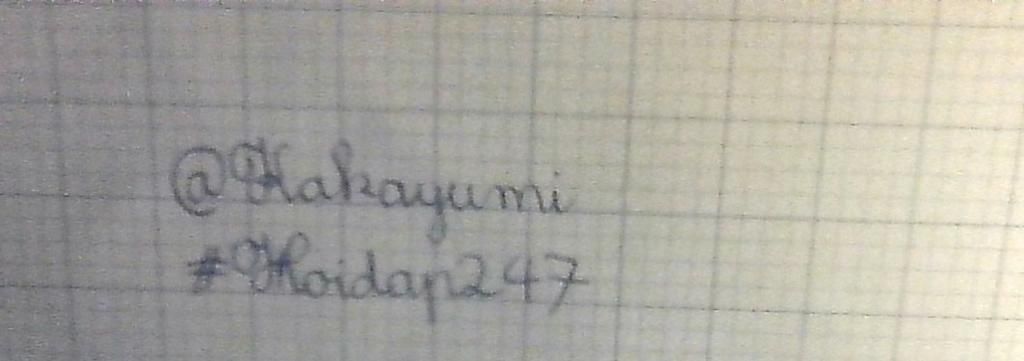 @Hakayumi
#Hoidap247